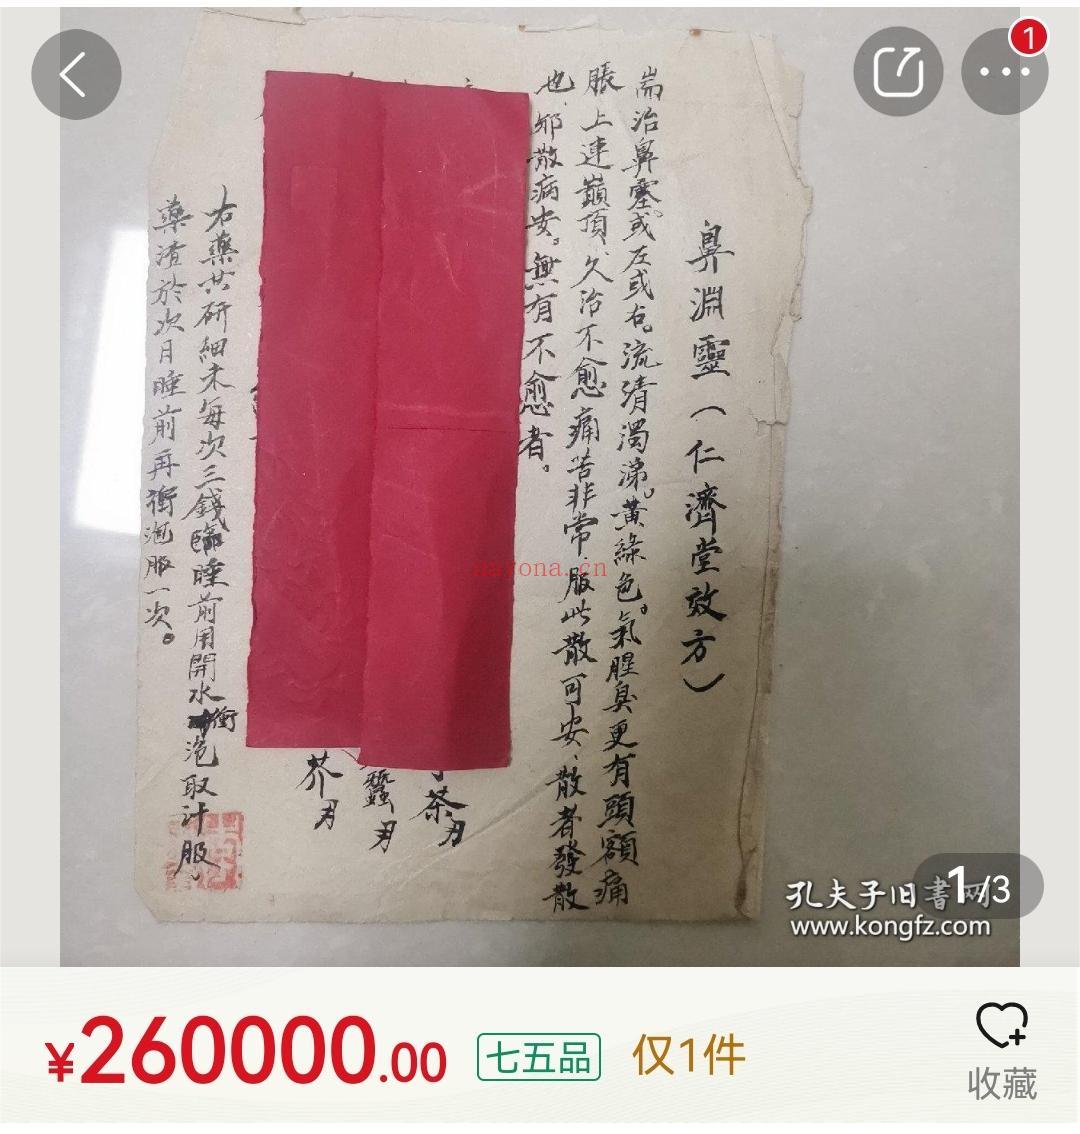 1
鼻淵靈（仁濟堂效方）
耑治鼻塞。或左或右。流清濁涕。黃綠色。氣腥臭更有頭額痛
脹上連巔頂、久治不愈痛苦非常、服此散可安、散者發散
也、邪散病安。無有不愈者。
茶
蠶
芥
右藥共研細末每次三錢臨睡前用開水衝泡取汁服。
藥渣於次日睡前再衝泡服一次。
nayona.cn
1/3
孔夫子旧書网
www.kongfz.com
¥260000.00
七五品
仅1件
收藏